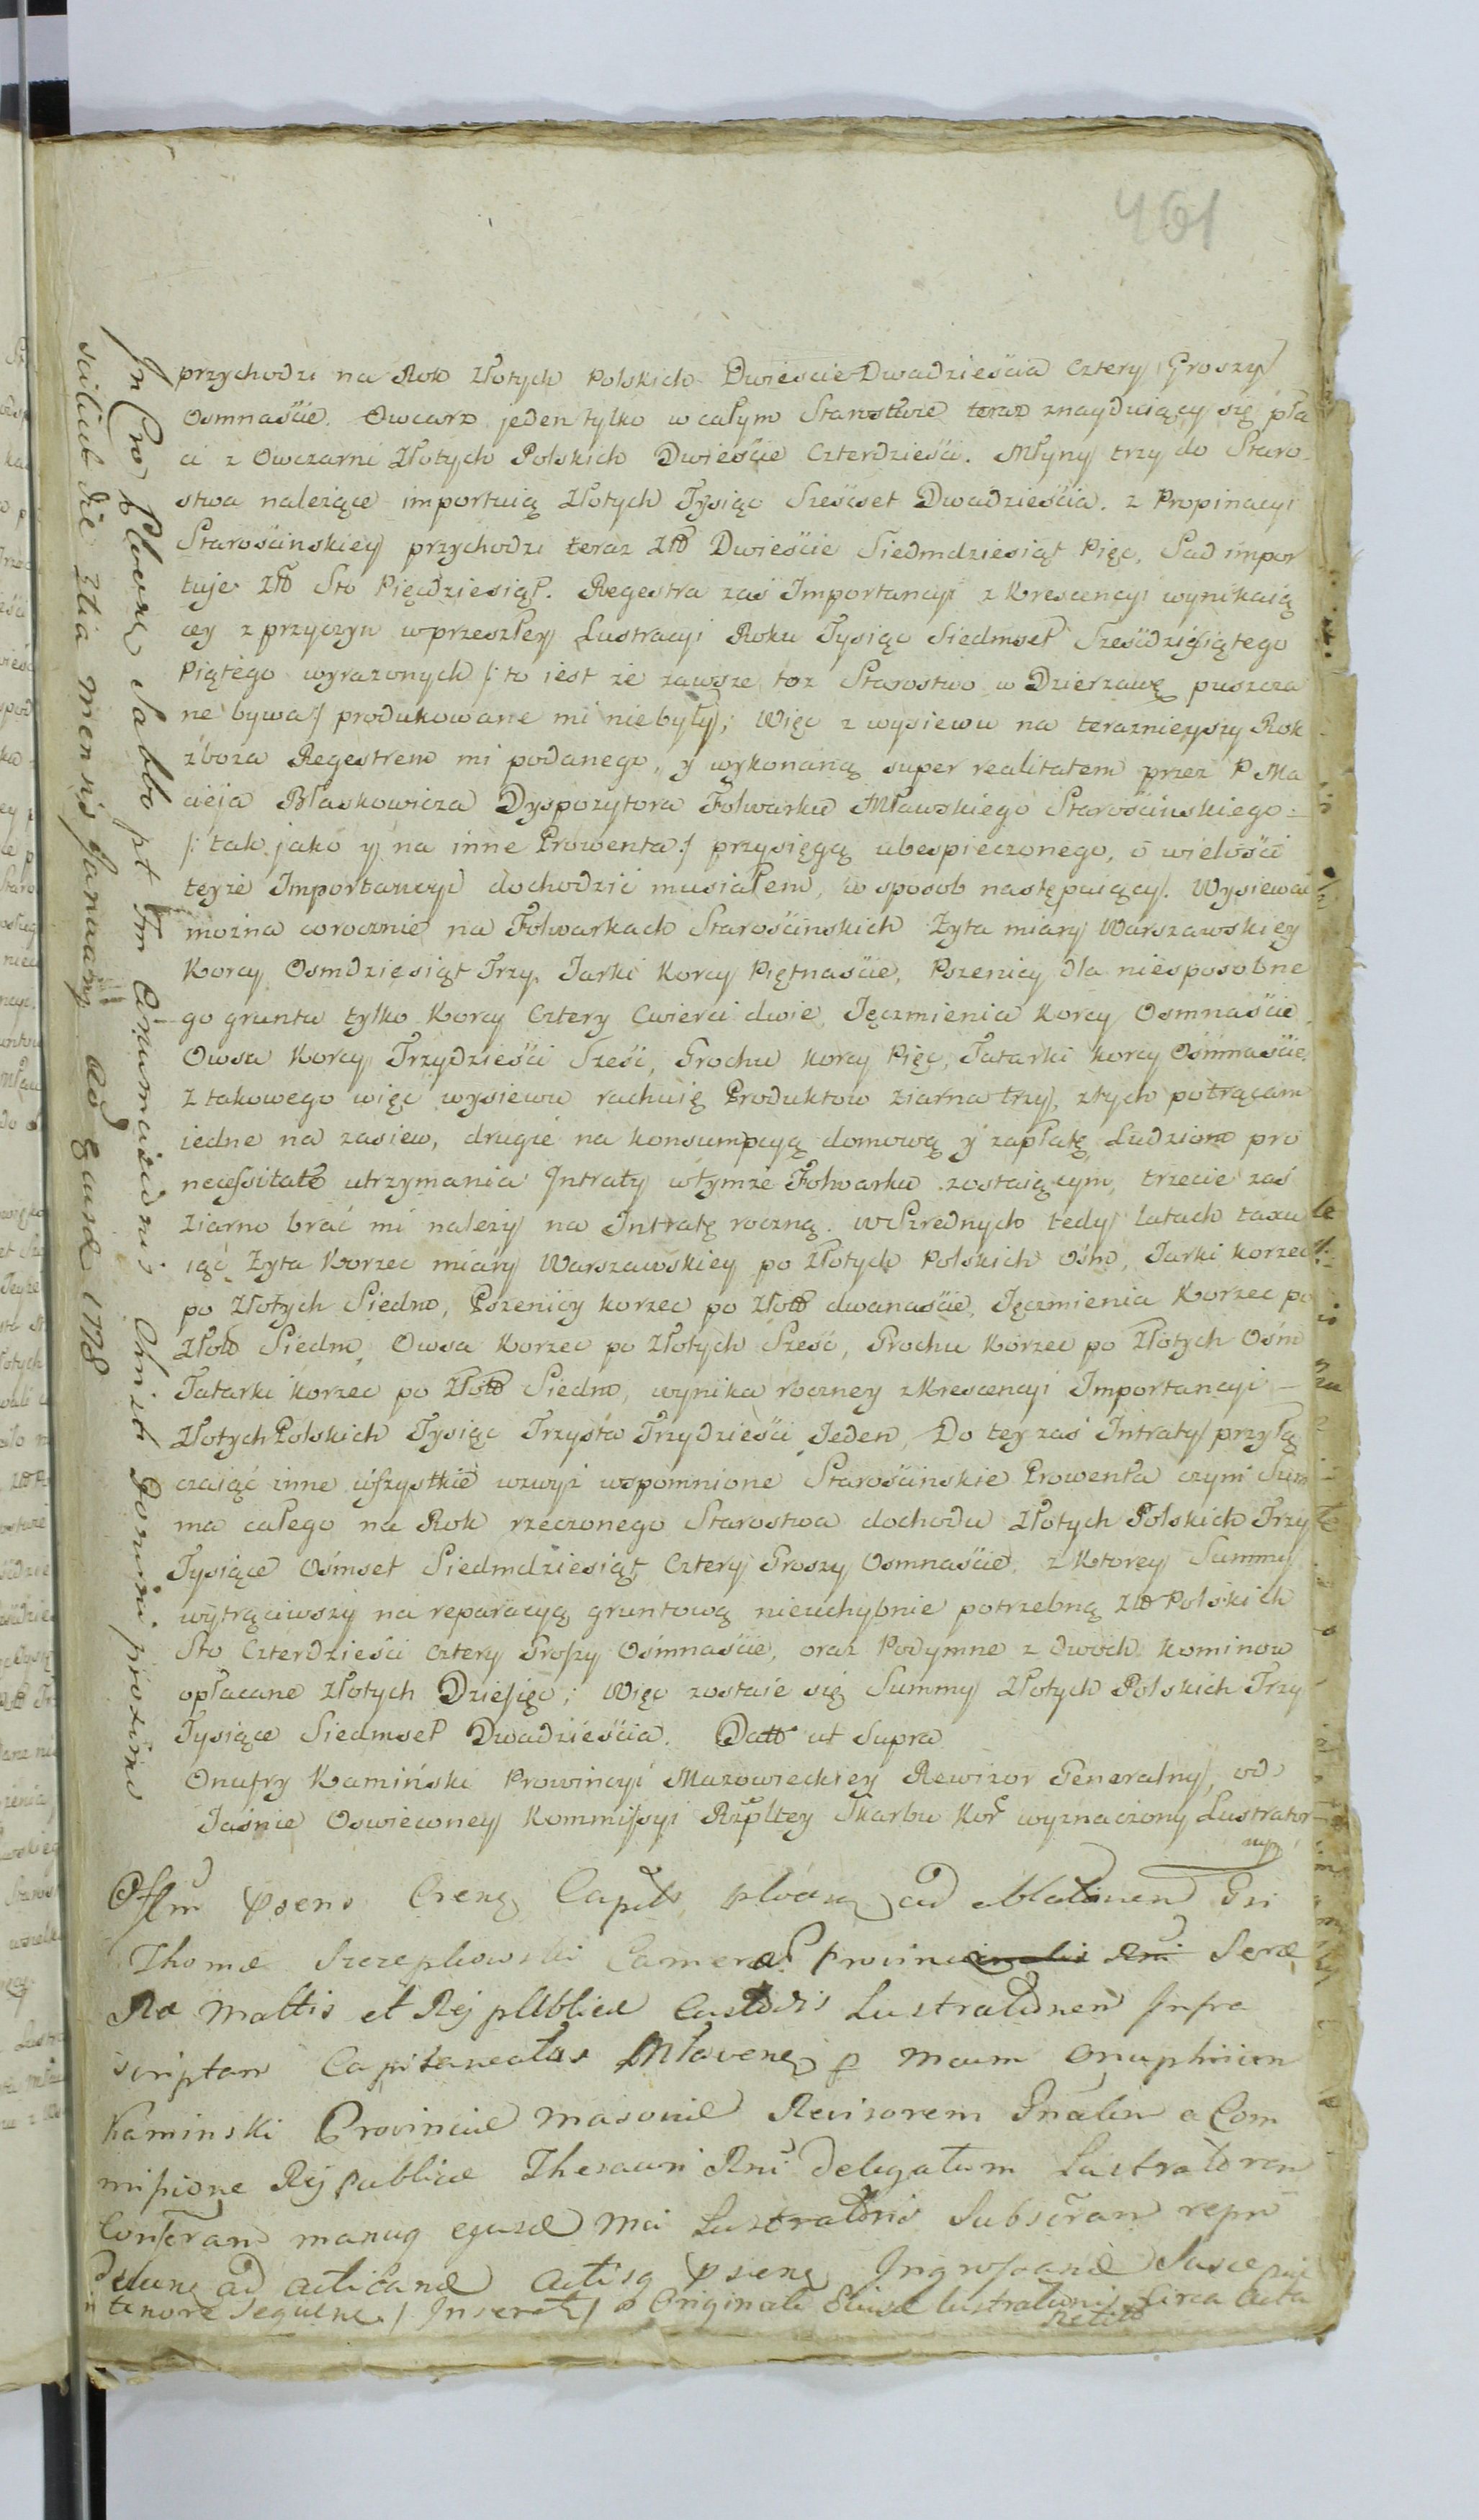 461
przychodzi na Rok Złotych Polskich Dwieście Dwadzieścia Cztery Groszy
Osmnaście. Owcarz jeden tylko w całym Starostwie teraz znayduiący się pła
ci z Owczarni Złotych Polskich Dwieście Czterdzieści. Młyny trzy do Staro-
stwa należące importuią Złotych Tysiąc Sześcset Dwadzieścia. z Propinacyi
Starościnskiey przychodzi teraz Złł Dwieście Siedmdziesiąt Pięc, Sad impor
tuje Złł Sto Pięcdziesiąt. Regestra zaś Importancyi z Krescencyi wynikaią
cey z przyczyn w przeszłey Lustracyi Roku Tysiąc Siedmset Sześcdziesiątego
Piątego wyrazonych /: to iest że zawsze toż Starostwo w Dzierzawę puszcza
ne bywa :/ produkowane mi nie były; Więc z wysiewu na terazniejszy Rok
zboza Regestrem mi podanego, y wykonaną super realitatem przez P Ma
cieja Błaskowicza Dyspozytora Folwarku Mławskiego Starościnskiego =
/: tak jako y na inne Prowenta :/ przysięgą ubespieczonego, o wielości
teyże Importancyi dochodzić musiałem, w sposob następuiący. Wysiewać
można corocznie na Folwarkach Starościnskich Zyta miary Warszawskiey
Korcy Osmdziesiąt Trzy, Jarki Korcy Piętnaście, Pszenicy dla niesposobne
go gruntu tylko Korcy Cztery Cwierci dwie, Jęczmienia Korcy Osmnaście,
Owsa Korcy Trzydzieści Sześć, Grochu korcy Pięc, Tatarki korcy Osmnaście.
Z takowego więc wysiewu rachuię Produktow ziarna trzy, z tych potrącam
iedne na zasiew, drugie na konsumpcyą domową y zapłatę Ludziom pro
necessitate utrzymania Intraty w tymze Folwarku zostaiącym, trzecie zaś
ziarno brać mi należy na Intratę roczną. w Srzednych tedy latach taxu
iąć Zyta Korzec miary Warszawskiey po Złotych Polskich Ośm, Jarki korzec
po Złotych Siedm, Pszenicy korzec po Złott dwanaście, Jęczmienia Korzec po
Złott Siedm, Owsa Korzec po Złotych Sześć, Grochu Korzec po Złotych Ośm
Tatarki korzec po Złott Siedm, wynika roczney z Krescencyi Importancyi —
Złotych Polskich Tysiąc Trzysta Trzydzieści Jeden, Do tey zaś Intraty przyłą
czaiąć inne wszystkie wzwyż wspomnione Starościnskie Prowenta czyni Sum
ma całego na Rok rzeczonego Starostwa dochodu Złotych Polskich Trzy
Tysiące Ośmset Siedmdziesiąt Cztery Groszy Osmnaście. z Ktorey Summy
wytrąciwszy na reparacyą gruntową nieuchybnie potrzebną Złł Polskich
Sto Czterdzieści cztery Groszy Osmnaście, oraz Podymne z dwoch Kominow
opłacane Złotych Dziesięc; Więc zostaie się Summy Złotych Polskich Trzy
Tysiące Siedmset Dwadzieścia. Datt ut Supra
Onufry Kamiński Prowincyi Mazowieckiey Rewizor Generalny, od
Jaśnie Oswieconey Kommissyi Rzpltey Skarbu Kor wyznaczony Lustrator
mp
Offm psens Crens Capits plocens ad Oblationem Gsi
Thoma Szczepkowski Camerae Sere
Rae Mattis et Reipublicae Lustrationem Infra
scriptam Capitaneatus Mlavens p Mcum Onuphrium
Kaminski Provinciae Masoviae Revisorem Gnalem a Com
missione Reipublicae Thesauri Rni delegatum Lustratorem
manuq ejusd Mci Lustratoris Subscram
ad acticand Actisq psens Ingrossand Suscepit
tenore sequens / Inserat / Originali Eiusd Lustrationis circa Acta
relicto
In Cro Plocens Sabbo pt Fm Circumcisionis Christi Domini proximo
scilicet die 3tia mensis Januarii Ao Eaund 1778